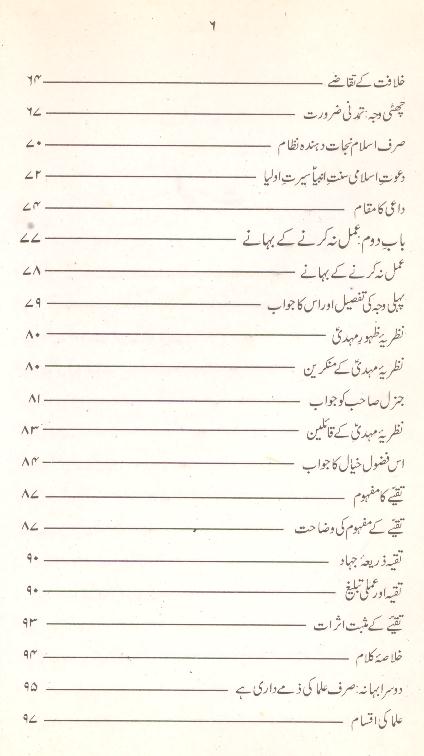 ۶
خلافت کے تقاضے ۶۴
چھٹی وجہ: تمدنی ضرورت ۶۷
صرف اسلام نجات دہندہ نظام ۷۰
دعوتِ اسلامی سنتِ انبیاؑ سیرتِ اولیا ۷۲
داعی کا مقام ۷۴
باب دوم: عمل نہ کرنے کے بہانے ۷۷
عمل نہ کرنے کے بہانے ۷۸
پہلی وجہ کی تفصیل اور اس کا جواب ۷۹
نظریۂ ظہورِ مہدیؑ ۸۰
نظریۂ مہدیؑ کے منکرین ۸۰
جنرل صاحب کو جواب ۸۱
نظریۂ مہدیؑ کے قائلین ۸۳
اس فضول خیال کا جواب ۸۴
تقیّے کا مفہوم ۸۷
تقیّے کے مفہوم کی وضاحت ۸۷
تقیہ ذریعۂ جہاد ۹۰
تقیہ اور عملی تبلیغ ۹۰
تقیّے کے مثبت اثرات ۹۳
خلاصۂ کلام ۹۴
دوسرا بہانہ: صرف علما کی ذمے داری ہے ۹۵
علما کی اقسام ۹۷